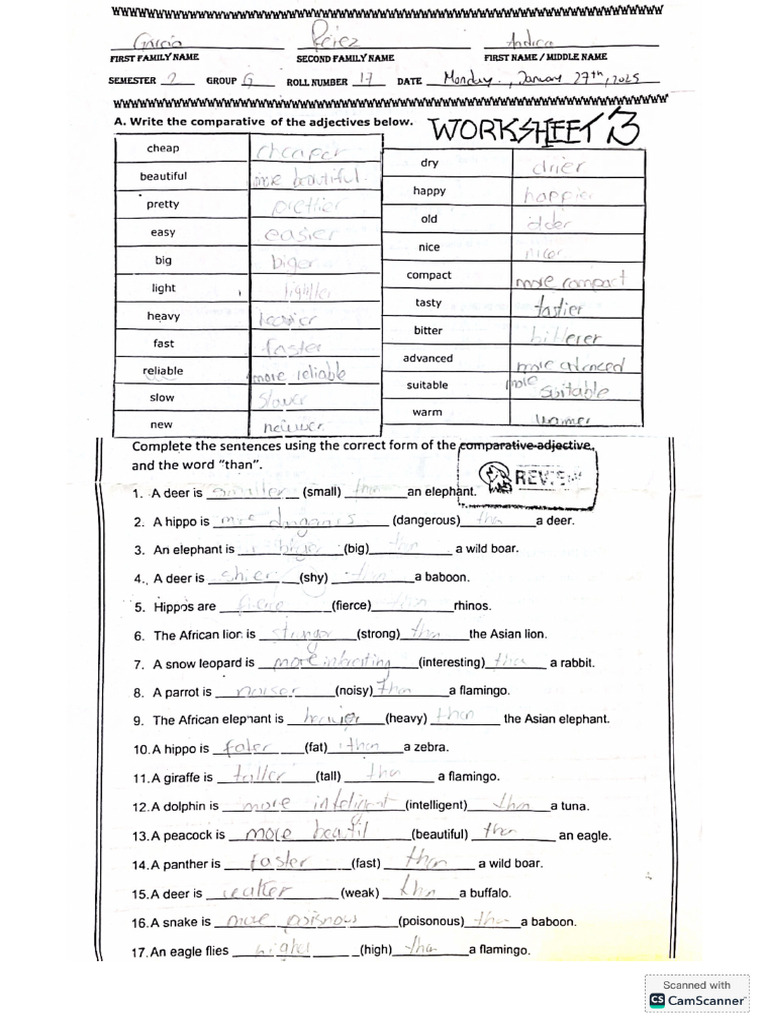 Garcia Pérez Andrea
FIRST FAMILY NAME SECOND FAMILY NAME FIRST NAME / MIDDLE NAME
SEMESTER 2 GROUP G ROLL NUMBER 17 DATE Monday, January 27th, 2025
A. Write the comparative of the adjectives below. WORKSHEET 3
cheap cheaper
beautiful more beautiful.
pretty prettier
easy easier
big biger
light lighter
heavy heavier
fast faster
reliable more reliable
slow slower
new newer
dry drier
happy happier
old older
nice nicer
compact more compact
tasty tastier
bitter bitterer
advanced more
suitable more suitable
warm warmer
Complete the sentences using the correct form of the comparative adjective,
and the word "than".
REVIEW
1. A deer is smaller (small) than an elephant.
2. A hippo is more (dangerous) than a deer.
3. An elephant is (big) a wild boar.
4. A deer is shier (shy) than a baboon.
5. Hippos are (fierce) than rhinos.
6. The African lion is stronger (strong) than the Asian lion.
7. A snow leopard is more (interesting) than a rabbit.
8. A parrot is noiser (noisy) than a flamingo.
9. The African elephant is (heavy) than the Asian elephant.
10. A hippo is (fat) than a zebra.
11. A giraffe is taller (tall) than a flamingo.
12. A dolphin is more (intelligent) than a tuna.
13. A peacock is more (beautiful) than an eagle.
14. A panther is faster (fast) than a wild boar.
15. A deer is (weak) than a buffalo.
16. A snake is more (poisonous) than a baboon.
17. An eagle flies higher (high) than a flamingo.
Scanned with
CS CamScanner